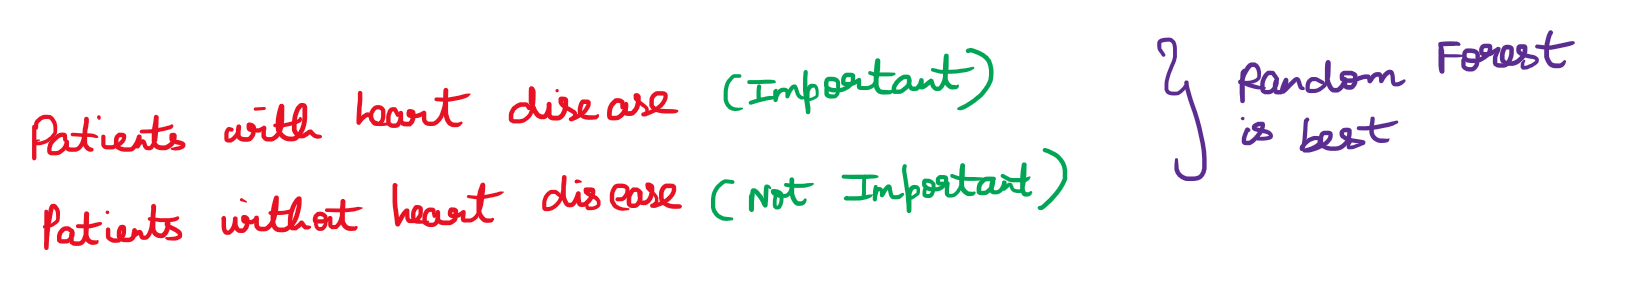 Patients with heart disease (Important)
Patients without heart disease (Not Important)
Random Forest
is best